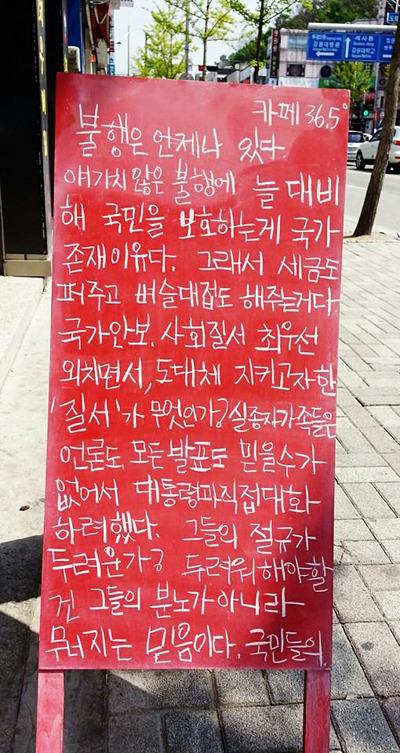 카페 36.5°
불행은 언제나 있다.
얘기치 않은 불행에 늘 대비
해 국민을 보호하는게 국가
존재이유다. 그래서 세금도
퍼주고 벼슬대접도 해주는거다.
국가안보, 사회질서 최우선
외치면서, 도대체 지키고자한
'질서'가 무엇인가? 실종자가족들은
언론도 모든 발표도 믿을수가
없어서 대통령과직접대화
하려했다. 그들의 절규가
두려운가? 두려워해야할
건 그들의 분노가아니라
무너지는 믿음이다. 국민들의
강원대병원
강원대학교